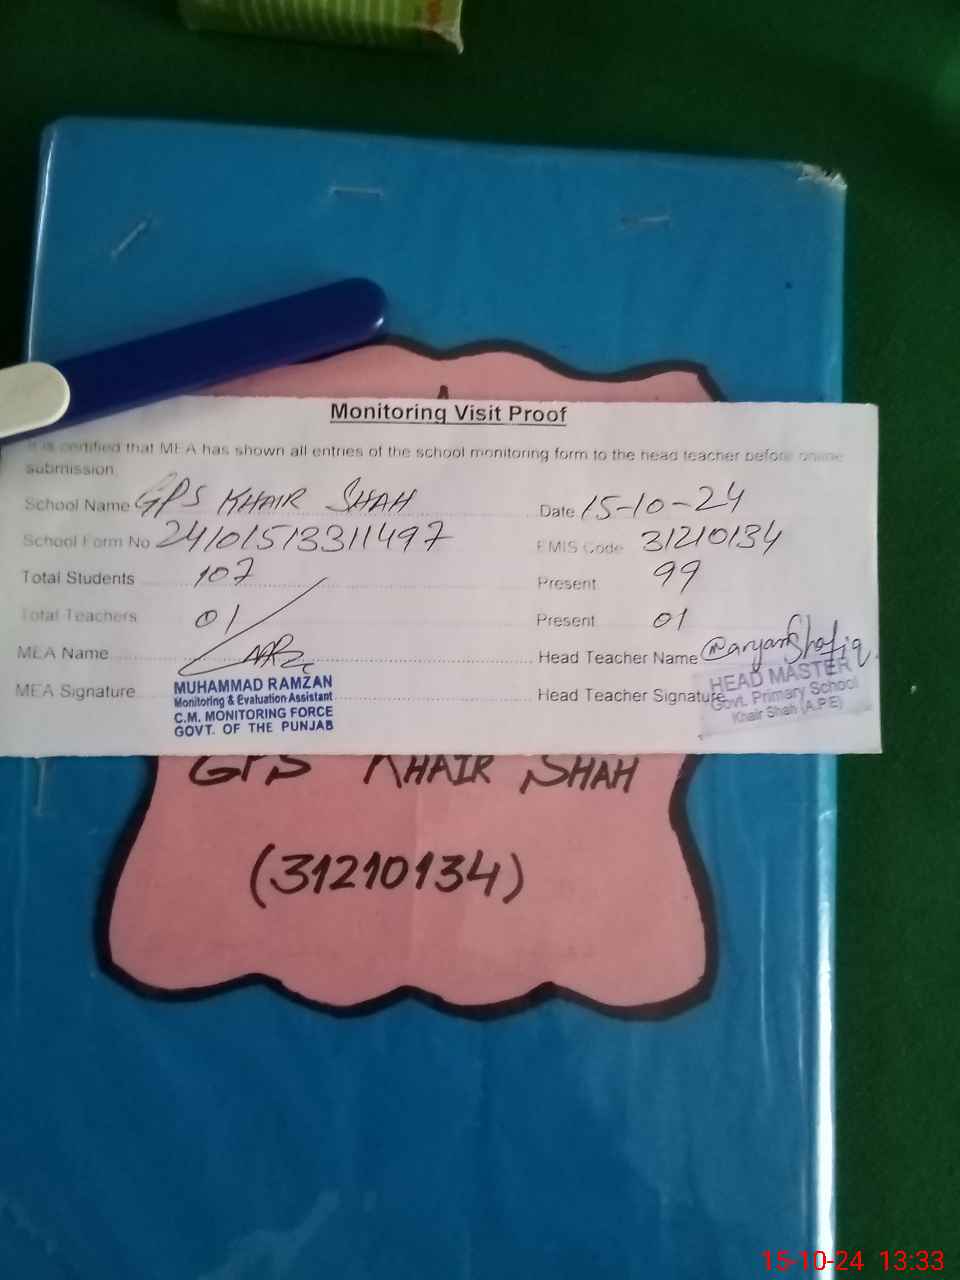 Monitoring Visit Proof
It is certified that MEA has shown all entries of the school monitoring form to the head teacher before online
submission
School Name GPS KHAIR SHAH Date 15-10-24
School Form No 24101513311497 EMIS Code 31210134
Total Students 107 Present 99
Total Teachers 01 Present 01
MEA Name Head Teacher Name
MEA Signature Head Teacher Signature
MUHAMMAD RAMZAN
Monitoring & Evaluation Assistant
C.M. MONITORING FORCE
GOVT. OF THE PUNJAB
HEAD MASTER
Govt. Primary School
Khair Shah (A.P.E)
GPS KHAIR SHAH
(31210134)
15-10-24 13:33